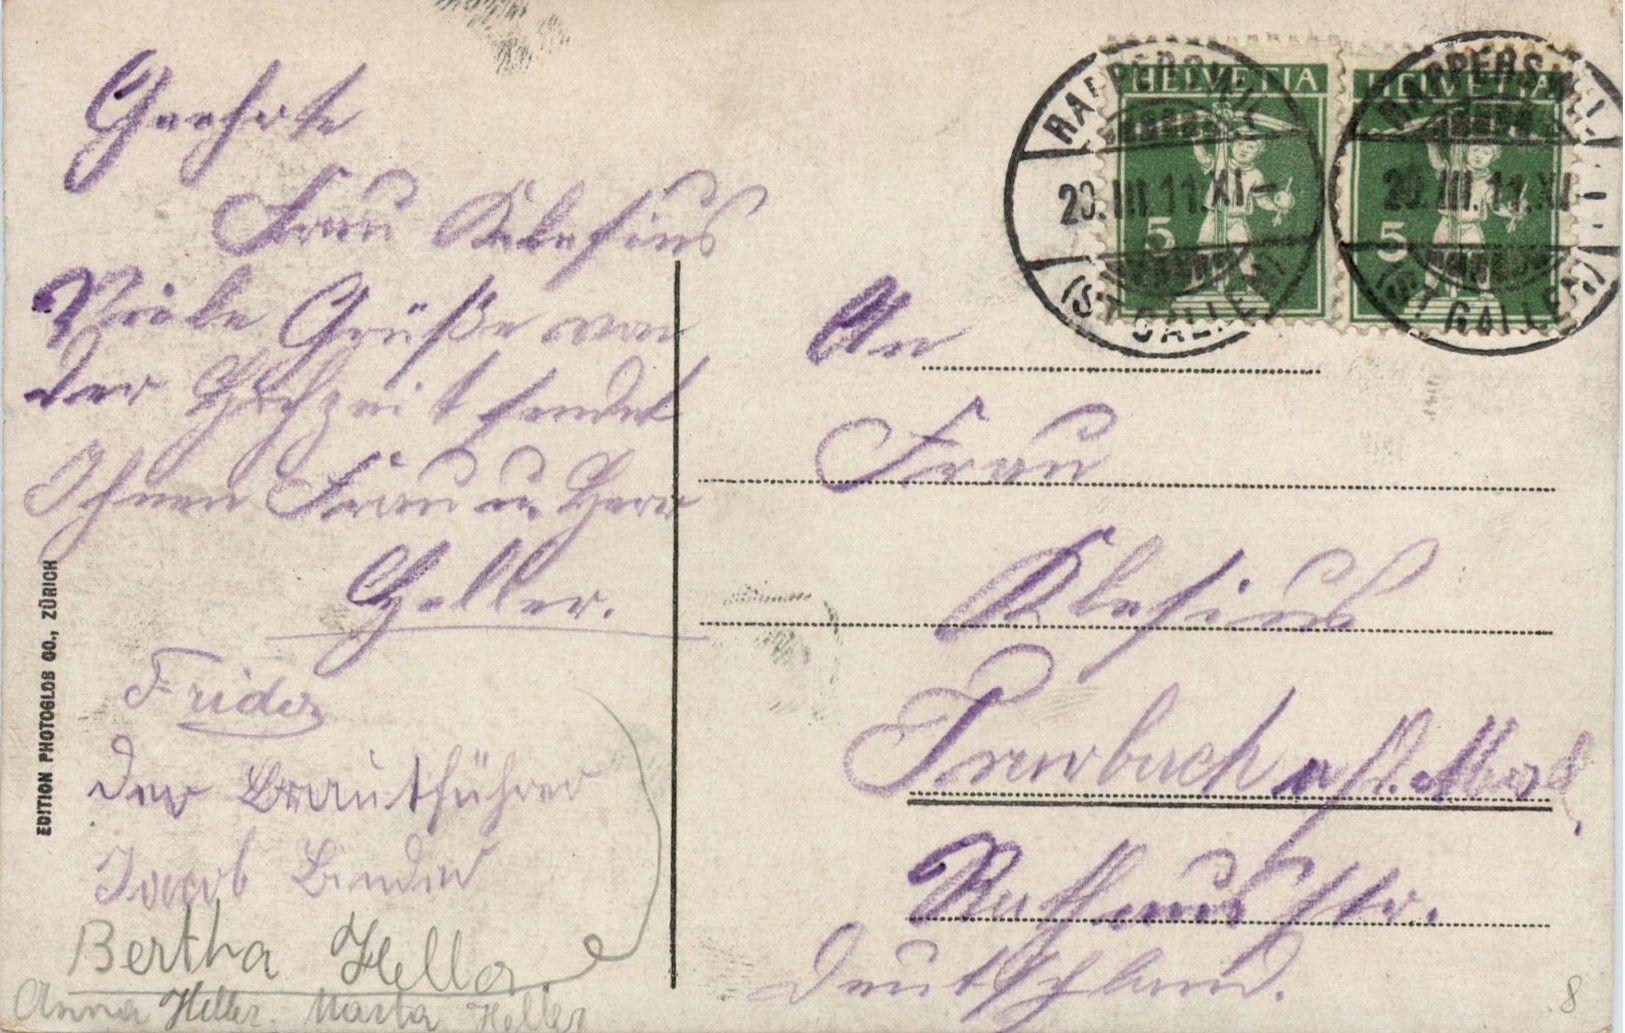 Geehrte
Frau Klesius
Viele Grüße von
der Hochzeit sendet
Ihnen Frau u. Herr
Heller.
Frieda
der Brautführer
Jacob Binder
Bertha Heller
Anna Heller. Marta Heller
EDITION PHOTOGLOB CO., ZÜRICH
HELVETIA
5
HELVETIA
5
RAPPERSWIL
20.III.11.XI-
(ST. GALLEN)
RAPPERSWIL
20.III.11.XI-
(ST. GALLEN)
An
Frau
Klesius
Trarbach a/d. Mosel
Rathausstr.
Deutschland.
8